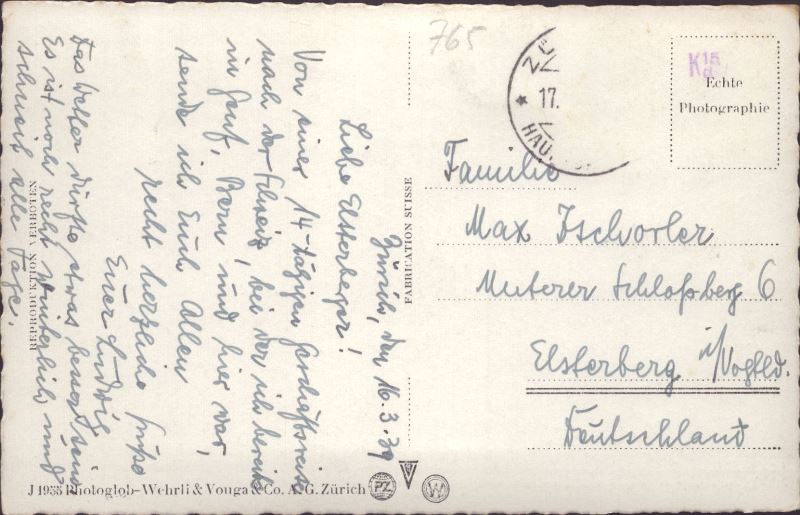 Zürich, den 16.3.39
Liebe Elsterberger!
Von einer 14-tägigen Geschäftsreise
nach der Schweiz, bei der ich bereits
in Genf, Bern, und hier war,
sende ich Euch Allen
recht herzliche Grüße
Euer Ludwig
Das Wetter dürfte etwas besser sein
Es ist noch recht winterlich und
schneit alle Tage.
REPRODUCTION VERBOTEN
FABRICATION SUISSE
765
17.
K 15 d
Echte
Photographie
Familie
Max Tschorler
Unterer Schloßberg 6
Elsterberg i/Vogtld.
Deutschland
J 1955 Photoglob-Wehrli & Vouga & Co. A. G. Zürich PZ V W